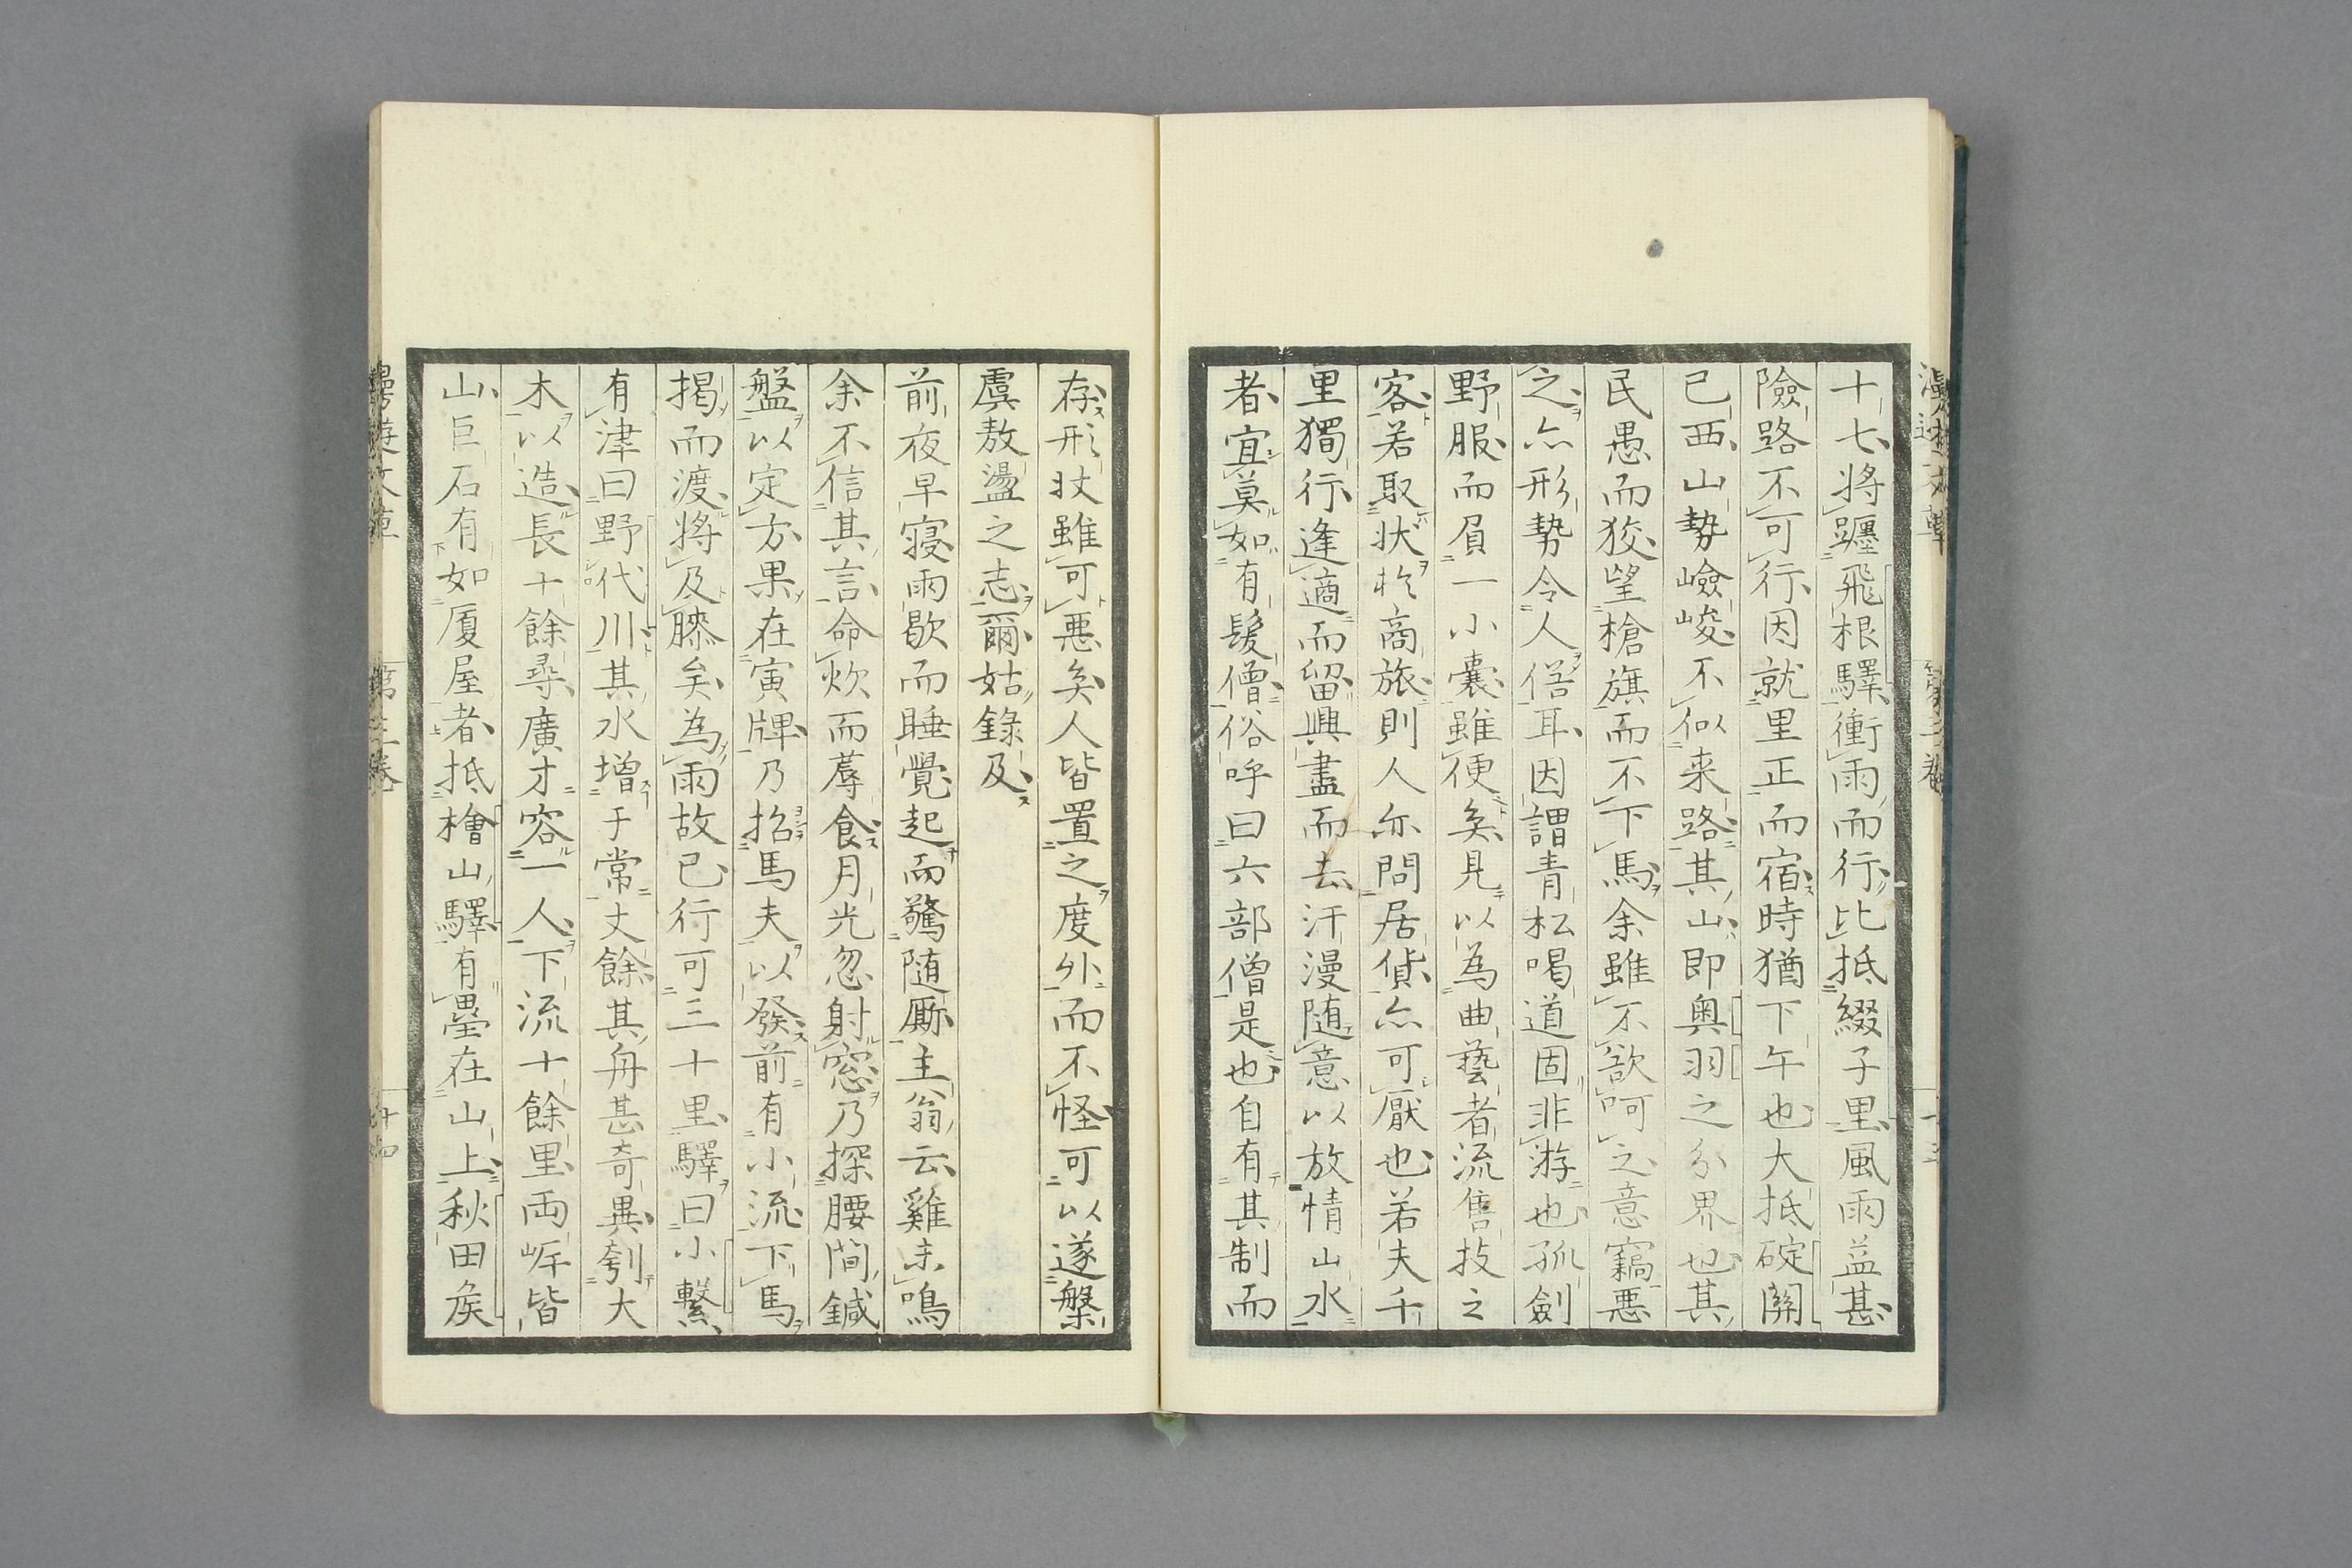 十七將躔飛根驛衝雨而行比抵綴子里風雨益甚
險路不可行因就里正而宿時猶下午也大抵碇關
已西山勢嶮峻不似来路其山即奥羽之分界也其
民愚而狡望槍旗而不下馬余雖不欲呵之意竊悪
之亦形勢令人倍耳因謂青松喝道固非游也孤劍
野服而肩一小囊雖便矣見以為曲藝者流售技之
客若取状於商旅則人亦問居貨亦可厭也若夫千
里獨行逢適而留興盡而去汗漫随意以放情山水
者宜莫如有髮僧俗呼曰六部僧是也自有其制而
存形状雖可悪矣人皆置之度外而不怪可以遂槃
虞敖盪之志爾姑錄及
前夜早寝雨歇而睡覺起而驚随厮主翁云雞未鳴
余不信其言命炊而蓐食月光忽射窓乃探腰間鍼
盤以定方果在寅牌乃招馬夫以發前有小流下馬
掲而渡將及膝矣為雨故已行可三十里驛曰小繫
有津曰野代川其水增于常丈餘其舟甚奇異刳大
木以造長十餘尋廣才容一人下流十餘里両崖皆
山巨石有如厦屋者抵檜山驛有壘在山上秋田侯
第三卷